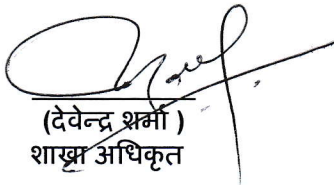 (देवेन्द्र शर्मा )
शाखा अधिकृत